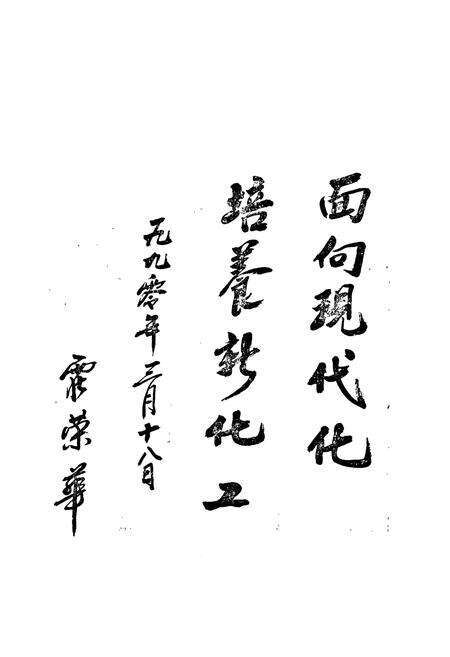 面向現代化
培養新化工
一九九零年三月十八日
霍荣華